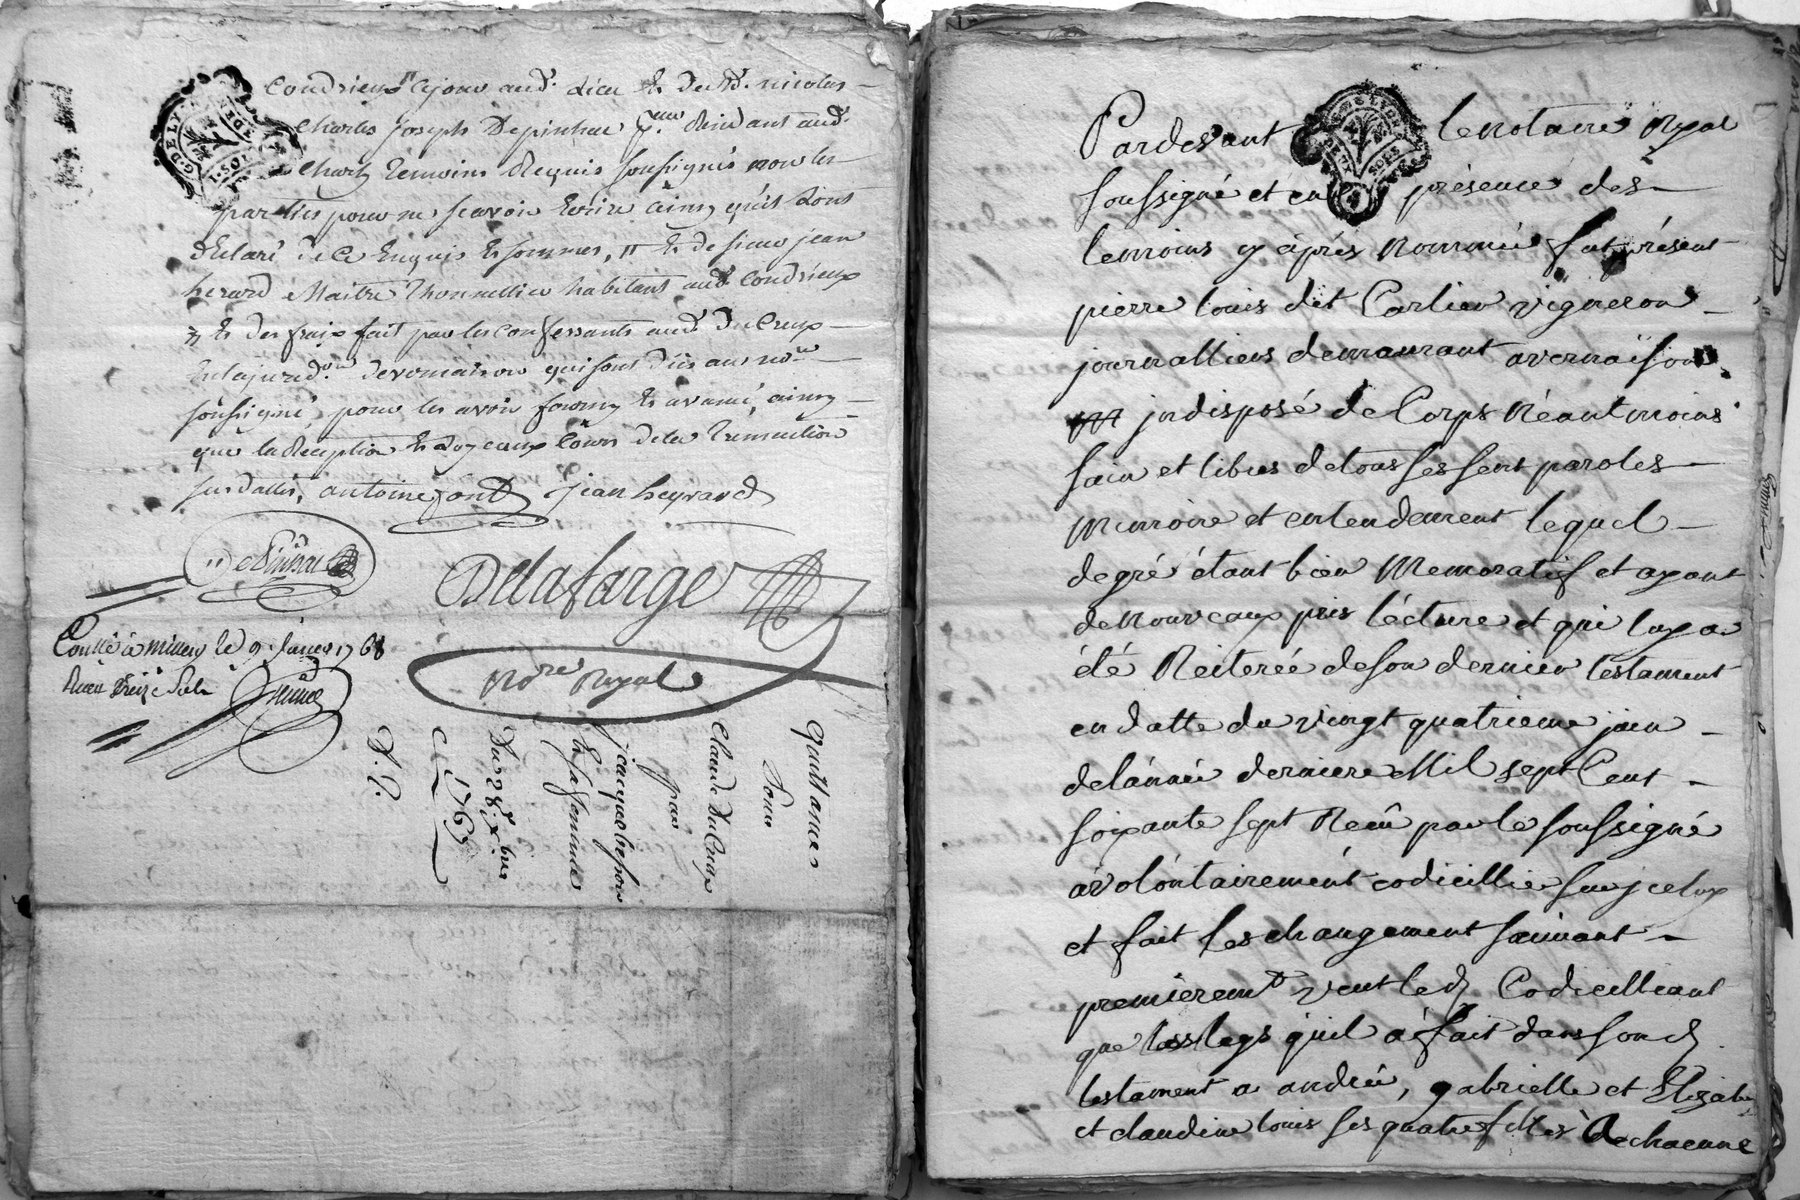 Condrieux ce jour aud. lieu et du Sr. nicolas
Charles Joseph Depinhac residant aud.
témoins Requis soussignés non les
parties pour ne scavoir Ecrire ainsy qu'ils ont
declaré de ce Enquis et sommes, et de sieur jean
herard Maitre Thonnellier habitant aud Condrieux
et des fraix fait par les confessants aud Ducreux
qui sont dus au no.re
soussigné, pour les avoir fourny et avancé, ainsy
que la Reception
antoine font jean heyrard
Delafarge
Conllé à millery le 9. Janvier 1768
Receu treize sols
No.re Royal
Quittance
Pour
Claude Ducreux
par
jeacque
et sa femme
Du 28. x.bre
1767
G. DE LYON
1. SOL
Pardevant le notaire Royal
soussigné et en présence des
temoins y àprés Nommé fut présent
pierre louis dit Carlieu vigneron
journalliers demeurant a vernaison
jndisposé de Corps Néantmoins
sain et libres de tous ses sens paroles
memoire et entendement lequel
de gré étant bien Memoratif et ayant
de nouveaux pris lécture et qui luy a
été Reiterée de son dernier testament
en datte du vingt quatrieme juin
de lánnée derniere Mil sept Cent
soixante sept Reçû par le soussigné
a volóntairement codicillié sur jceluy
et fait les changement suivant
premierem.t veut led. Codicilliant
que les legs quil a fait dans son d.
testament a andrée, gabrielle et Elizabe
et claudine louis ses quatre filles de chacune